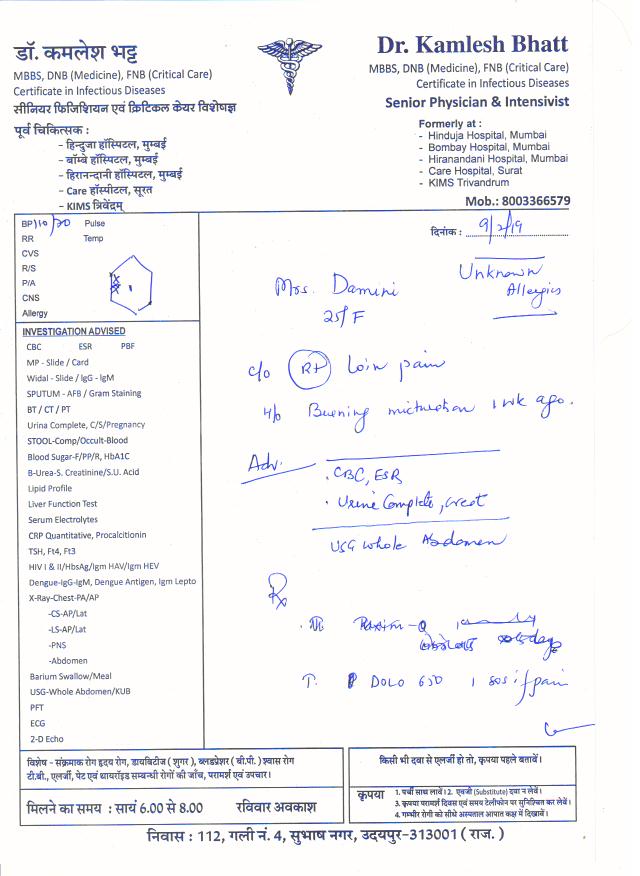 डॉ. कमलेश भट्ट
MBBS, DNB (Medicine), FNB (Critical Care)
Certificate in Infectious Diseases
सीनियर फिजिशियन एवं क्रिटिकल केयर विशेषज्ञ
पूर्व चिकित्सक :
- हिन्दुजा हॉस्पिटल, मुम्बई
- बॉम्बे हॉस्पिटल, मुम्बई
- हिरानन्दानी हॉस्पिटल, मुम्बई
- Care हॉस्पीटल, सूरत
- KIMS त्रिवेंद्रम्
Dr. Kamlesh Bhatt
MBBS, DNB (Medicine), FNB (Critical Care)
Certificate in Infectious Diseases
Senior Physician & Intensivist
Formerly at :
- Hinduja Hospital, Mumbai
- Bombay Hospital, Mumbai
- Hiranandani Hospital, Mumbai
- Care Hospital, Surat
- KIMS Trivandrum
Mob.: 8003366579
BP 110/70 Pulse
RR Temp
CVS
R/S
P/A
CNS
Allergy
INVESTIGATION ADVISED
CBC ESR PBF
MP - Slide / Card
Widal - Slide / IgG - IgM
SPUTUM - AFB / Gram Staining
BT / CT / PT
Urina Complete, C/S/Pregnancy
STOOL-Comp/Occult-Blood
Blood Sugar-F/PP/R, HbA1C
B-Urea-S. Creatinine/S.U. Acid
Lipid Profile
Liver Function Test
Serum Electrolytes
CRP Quantitative, Procalcitonin
TSH, Ft4, Ft3
HIV I & II/HbsAg/Igm HAV/Igm HEV
Dengue-IgG-IgM, Dengue Antigen, Igm Lepto
X-Ray-Chest-PA/AP
-CS-AP/Lat
-LS-AP/Lat
-PNS
-Abdomen
Barium Swallow/Meal
USG-Whole Abdomen/KUB
PFT
ECG
2-D Echo
दिनांक : 9/2/19
Unknown
Allergies
Mrs. Damini
25/F
c/o Rt loin pain
H/o Burning micturation 1 wk ago.
Adv.
. CBC, ESR
. Urine Complete, creat
USG Whole Abdomen
Rx
T. DOLO 650 1 sos if pain
विशेष - संक्रमाक रोग हृदय रोग, डायबिटीज ( शुगर ), ब्लडप्रेशर ( बी.पी. ) श्वास रोग
टी.बी., एलर्जी, पेट एवं थायरॉइड सम्बन्धी रोगों की जाँच, परामर्श एवं उपचार।
मिलने का समय : सायं 6.00 से 8.00 रविवार अवकाश
किसी भी दवा से एलर्जी हो तो, कृपया पहले बतावें।
कृपया
1. पर्ची साथ लावें। 2. एवजी (Substitute) दवा न लेवें।
3. कृपया परामर्श दिवस एवं समय टेलीफोन पर सुनिश्चित कर लेवें।
4. गम्भीर रोगी को सीधे अस्पताल आपात कक्ष में दिखावें।
निवास : 112, गली नं. 4, सुभाष नगर, उदयपुर-313001 ( राज. )